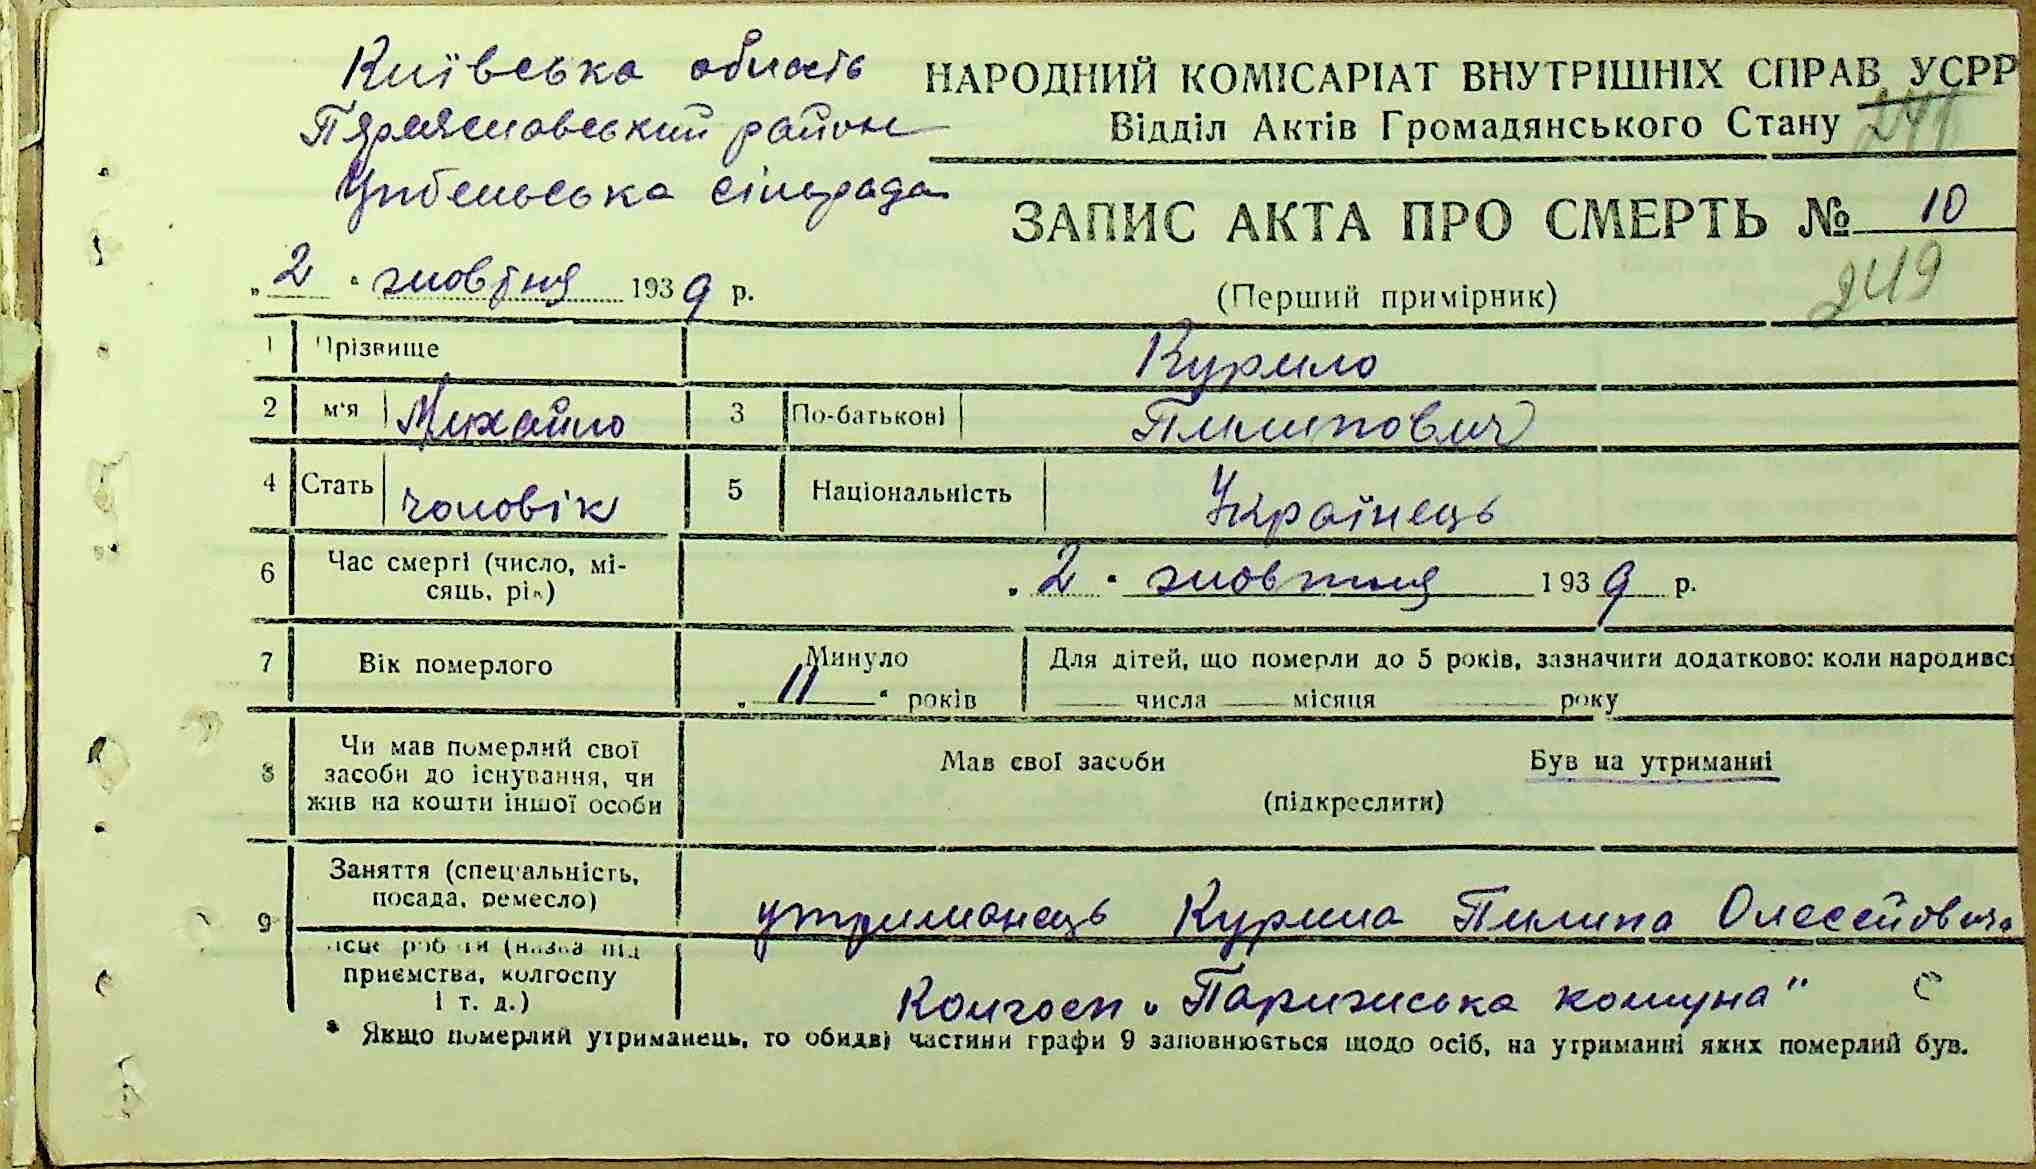 Київська область
НАРОДНИЙ КОМІСАРІАТ ВНУТРІШНІХ СПРАВ УСРР
Переяславський район
Відділ Актів Громадянського Стану
241
сільрада
ЗАПИС АКТА ПРО СМЕРТЬ № 10
„ 2 " жовтня 1939 р.
(Перший примірник)
249
1 Прізвище Курило
2 м'я Михайло 3 По-батькові Пилипович
4 Стать чоловік 5 Національність Українець
6 Час смерті (число, мі-
сяць, рік) „ 2 " жовтня 1939 р.
7 Вік померлого Минуло
„ 11 " років
Для дітей, що померли до 5 років, зазначити додатково: коли народивс
числа місяця року
8 Чи мав померлий свої
засоби до існування, чи
жив на кошти іншої особи
Мав свої засоби Був на утриманні
(підкреслити)
9 Заняття (спеціальність,
посада, ремесло) утриманець Курила Пилипа Олесейовича
ісце роботи (назва під
приємства, колгоспу
і т. д.) Колгосп „Паризиська комуна"
* Якщо померлий утриманець, то обидві частини графи 9 заповнюється щодо осіб, на утриманні яких померлий був.